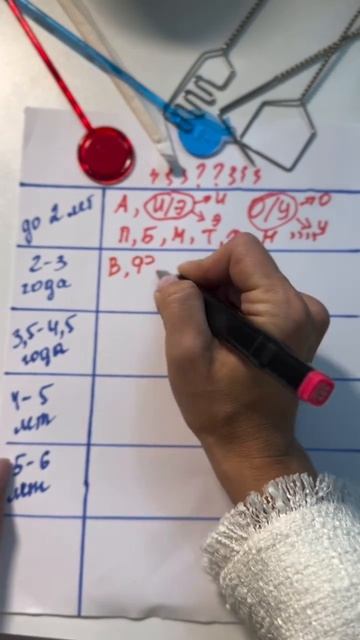 до 2 лет
А, И/Э И Э О/У О У
П, Б, М, Т, Н
2-3 года
В, Ф
3,5-4,5 года
4-5 лет
5-6 лет